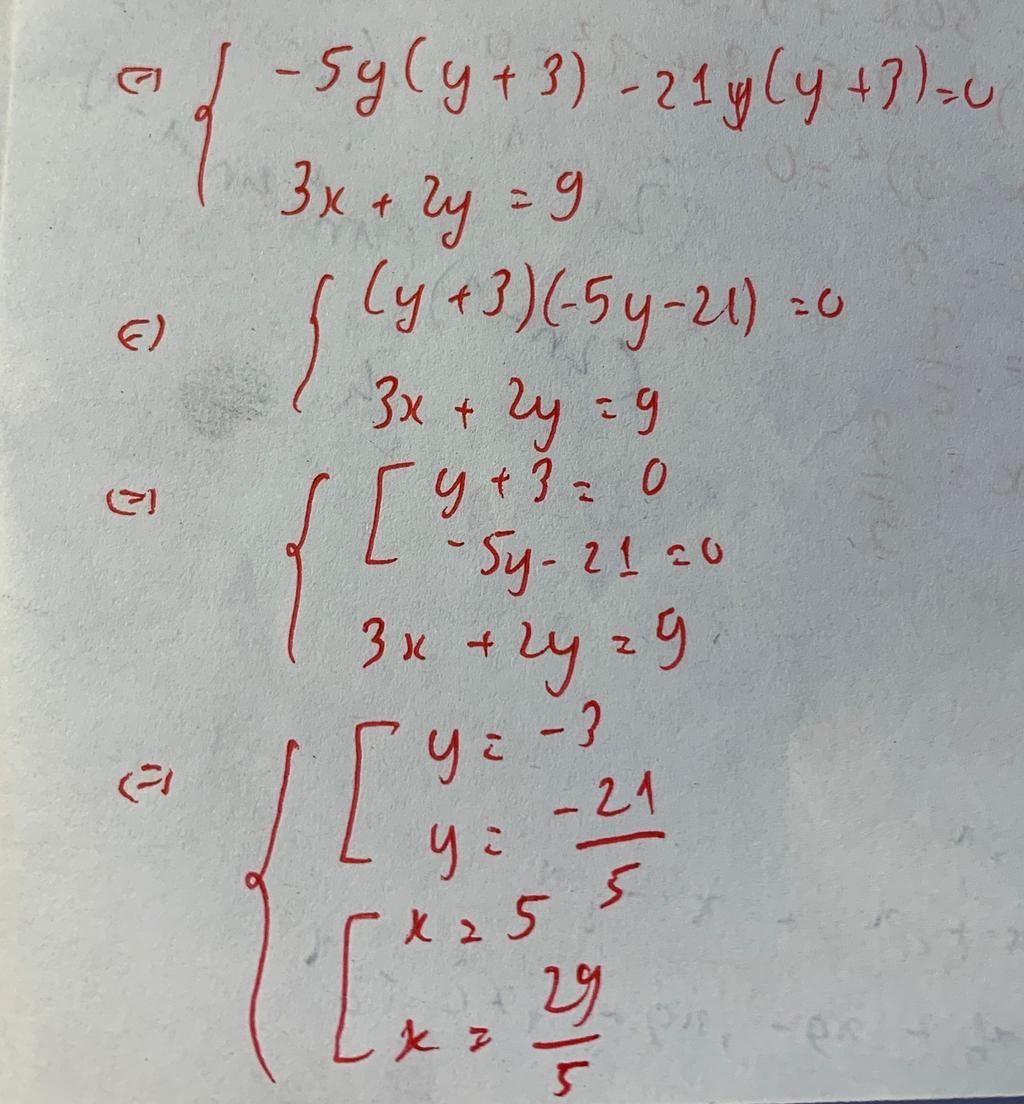 ⇔ { -5y(y+3) -21y(y+3)=0
3x + 2y = 9
⇔ { (y+3)(-5y-21) =0
3x + 2y = 9
⇔ { [ y+3 = 0
-5y-21 =0
3x + 2y = 9
⇔ { [ y = -3
y = -21/5
[ x = 5
x = 29/5